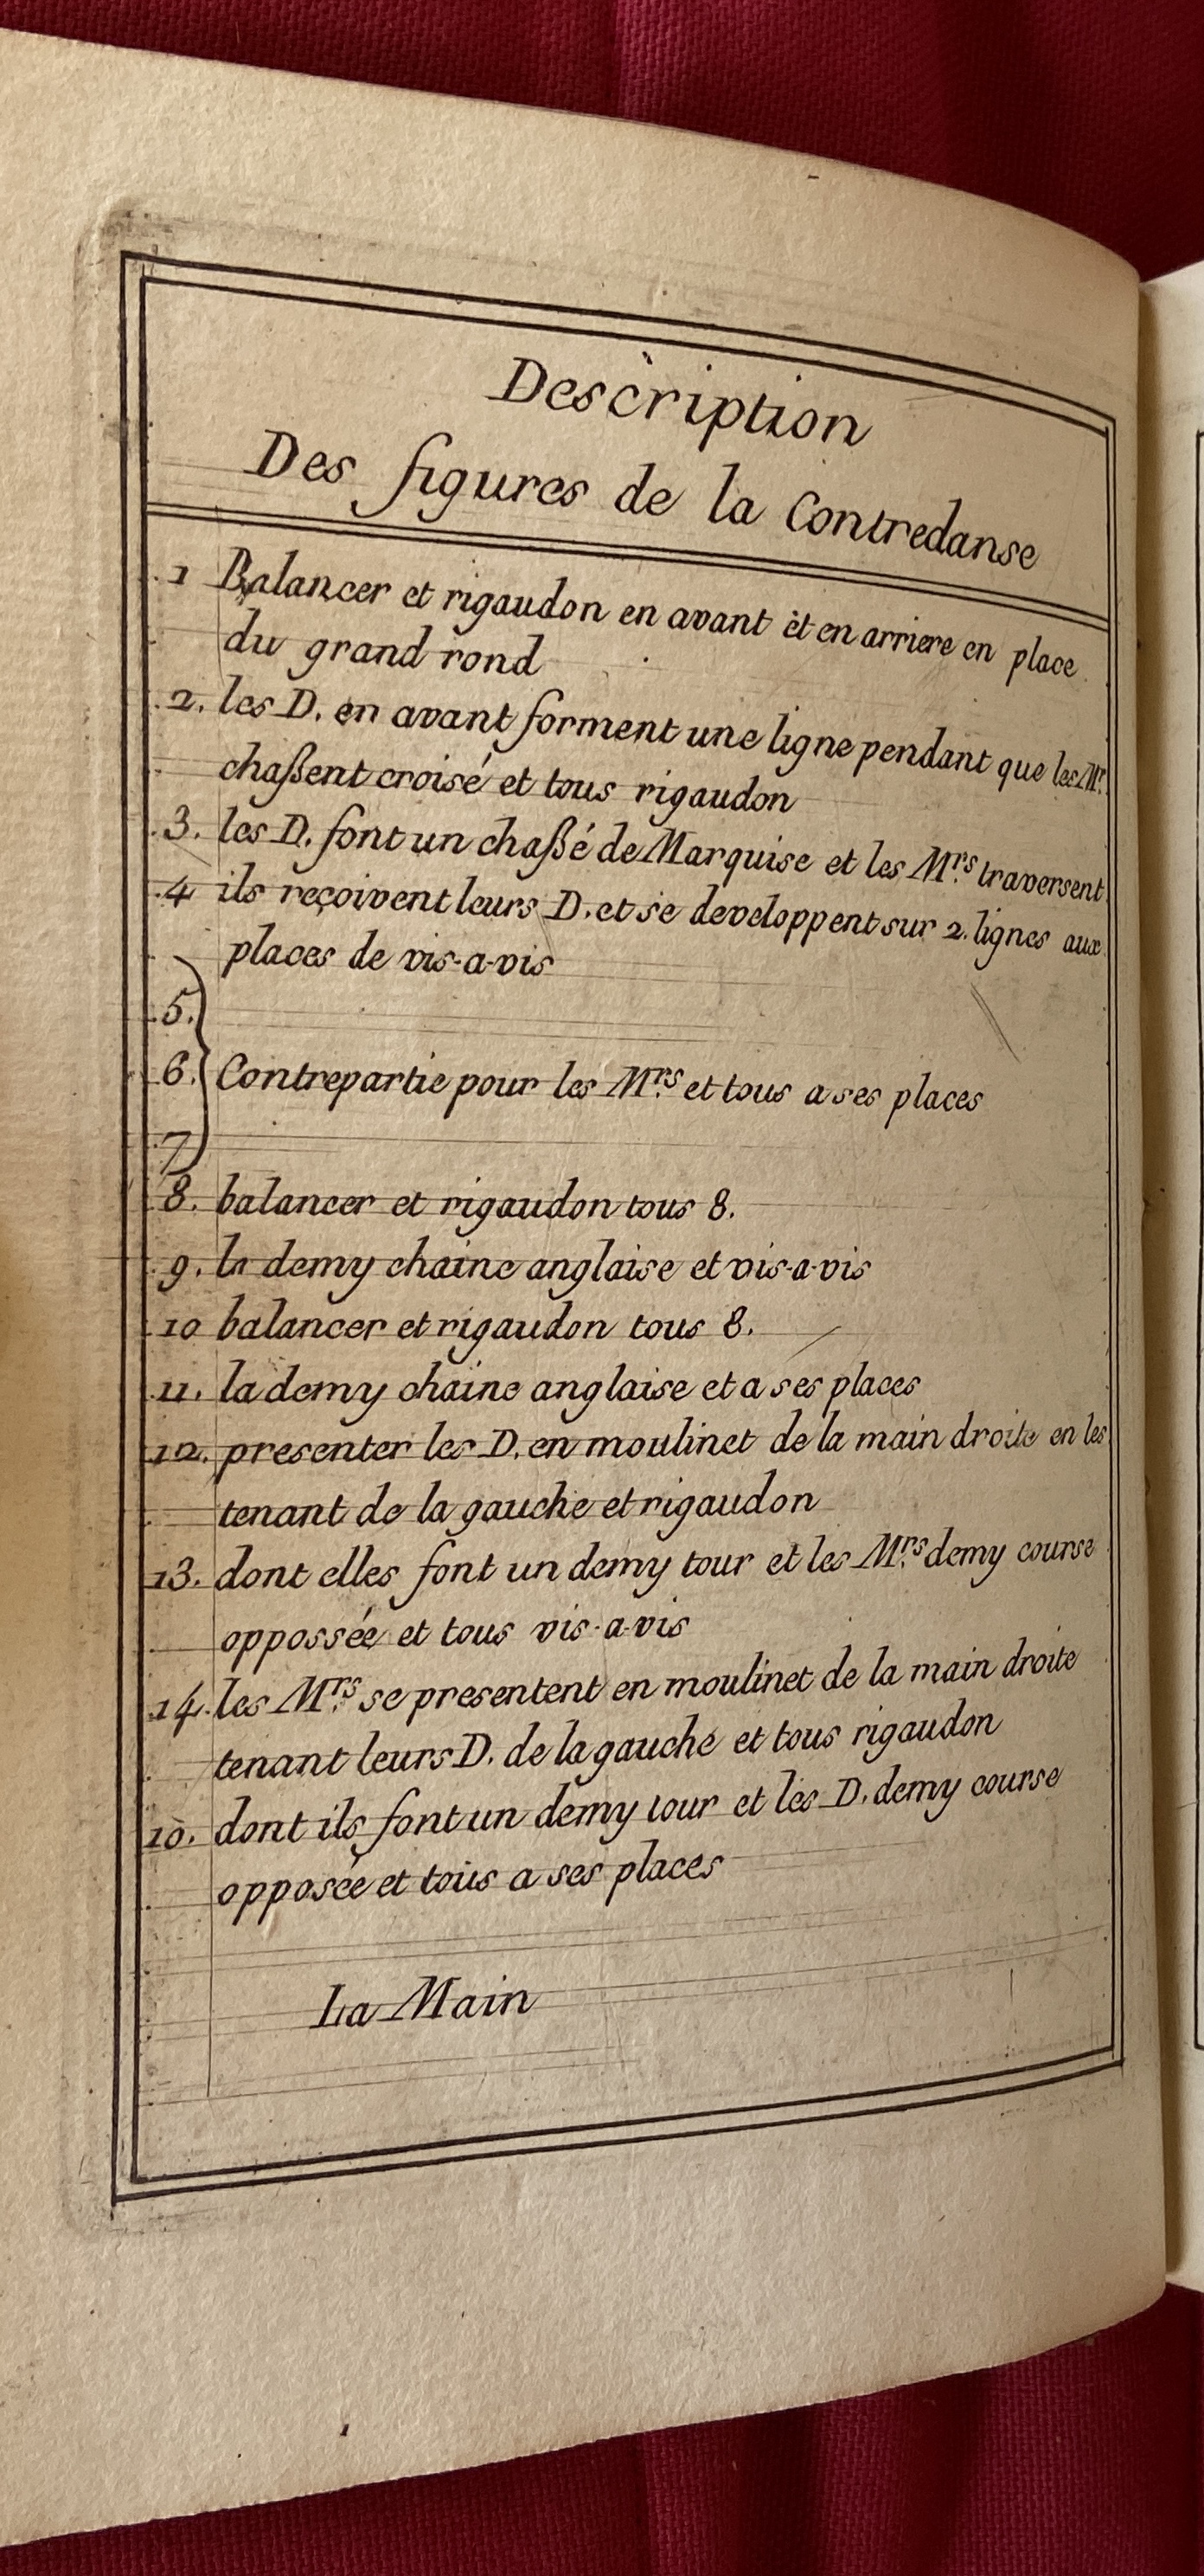 Description
Des figures de la Contredanse
1 Balancer et rigaudon en avant et en arriere en place
du grand rond
2. les D. en avant forment une ligne pendant que les Mrs.
chaßent croisé et tous rigaudon
3. les D. font un chaßé de Marquise et les Mrs. traversent
4 ils reçoivent leurs D. et se developpent sur 2. lignes aux
places de vis-a-vis
5.
6. Contrepartie pour les Mrs. et tous a ses places
7
8. balancer et rigaudon tous 8.
9. la demy chaine anglaise et vis-a-vis
10 balancer et rigaudon tous 8.
11. la demy chaine anglaise et a ses places
12. presenter les D. en moulinet de la main droite en les
tenant de la gauche et rigaudon
13. dont elles font un demy tour et les Mrs. demy course
oppossée et tous vis-a-vis
14. les Mrs. se presentent en moulinet de la main droite
tenant leurs D. de la gauche et tous rigaudon
15. dont ils font un demy tour et les D. demy course
opposée et tous a ses places
La Main